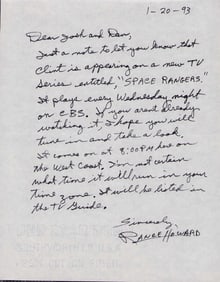 1-20-93
Dear Josh and Dan,
Just a note to let you know that
Clint is appearing on a new TV
Series entitled, "SPACE RANGERS."
It plays every Wednesday night
on CBS. If you arent already
watching it, I hope you will
tune in and take a look.
It comes on at 8:00PM here on
the West Coast. I'm not certain
what time it will run in your
time zone. It will be listed in
the TV Guide.
Sincerely
RANCE HOWARD